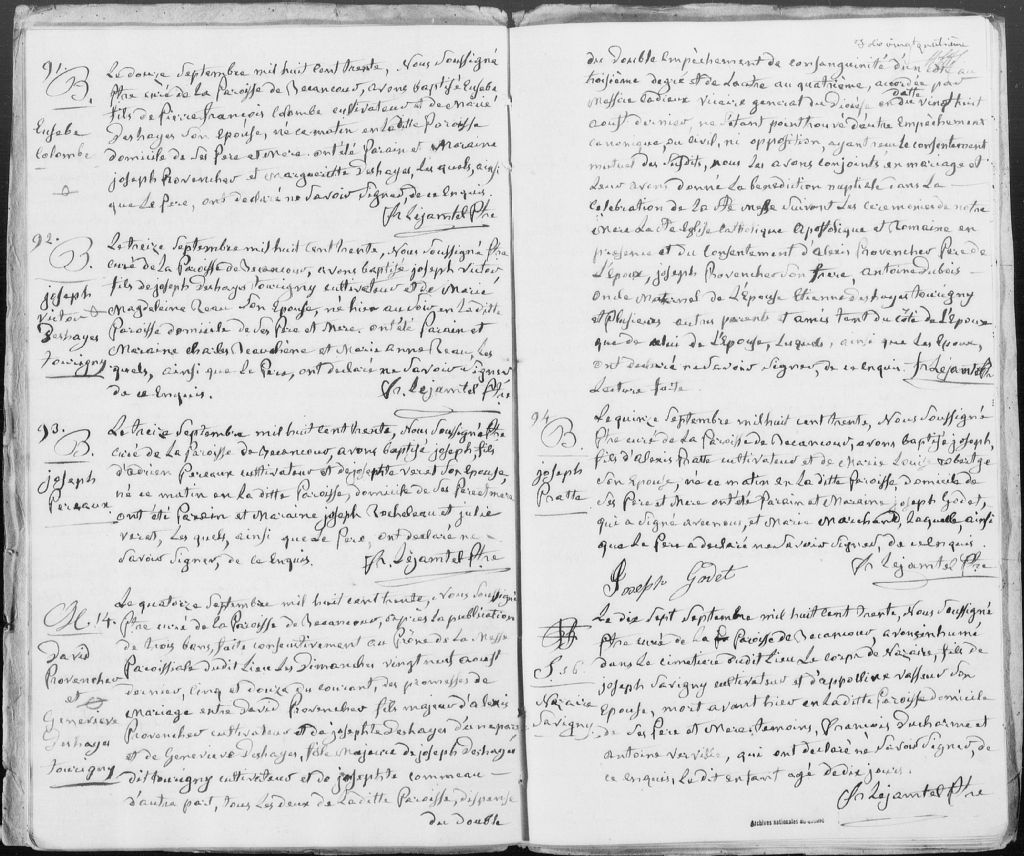 91.
B.
Eusebe
Colombe
Le douze Septembre mil huit cent trente, Nous Soussigné
Ptre curé de La Paroisse de Becancour, avons baptisé Eusebe
fils de Pierre François Colombe cultivateur et de Marié
Deshayes Son Epouse, né ce matin en Laditte Paroisse
domicile de Ses Pere et Mere. ont été Parain et Maraine
joseph Provencher et Margueritte Deshayes, Lesquels, ainsi
que Le Pere, ont declaré ne Savoir Signer, de ce Enquis.
Fr. Lejamtel Ptre
92.
B.
joseph
Victor
Deshayes
Tourigny
Le treize Septembre mil huit cent trente, Nous Soussigné Ptre
curé de La Paroisse de Becancour, avons baptisé joseph Victor
fils de joseph Deshayes Tourigny cultivateur et de Marie
Magdeleine Reau Son Epouse, né hier au Soir en Laditte
Paroisse domicile de Ses Pere et Mere. ont été Parain et
Maraine charles Beauchêne et Marie anne Reau, Les
quels, ainsi que Le Pere, ont declaré ne Savoir Signer
de ce Enquis.
Fr. Lejamtel Ptre
93.
B.
joseph
Perraux
Le treize Septembre mil huit cent trente, Nous Soussigné Ptre
curé de La Paroisse de Becancour, avons baptisé joseph fils
d'adrien Perraux cultivateur et de josephte veret Son Epouse,
né ce matin en La ditte Paroisse, domicile de Ses Pere et mere
ont été Parain et Maraine joseph Rocheleau et julie
veret, Les quels, ainsi que Le Pere, ont declaré ne
Savoir Signer, de ce Enquis.
Fr. Lejamtel Ptre
M. 14.
David
Provencher
et
Genevieve
Deshayes
Tourigny
Le quatorze Septembre mil huit cent trente, Nous Soussigné
Ptre curé de La Paroisse de Becancour, après La publication
de trois bans, faite consecutivement au Prône de La Messe
Paroissiale dudit Lieu Les Dimanches vingt neuf aoust
dernier, cinq et douze du courant, des promesses de
Mariage entre David Provencher fils majeur d'alexis
Provencher cultivateur et de josephte Deshayes d'une part
et de Genevieve Deshayes, fille Majeure de joseph Deshayes
dit Tourigny cultivateur et de josephte commeau
d'autre part, tous Les deux de Laditte Paroisse, dispense
du Double
vingt quatrième
du Double Empêchement de consanguinité d'un côté au
troisième degré et de L'autre au quatrième, accordée par
Messire Cadieux Vicaire general du Diocèse en datte du vingt huit
aoust dernier, ne S'étant point trouvé d'autre Empêchement
canonique, ou Civil, ni opposition, ayant reçu Le consentement
mutuel des Susdits, nous Les avons conjoints en mariage et
Leur avons donné La benediction nuptiale dans La
celebration de La Ste Messe Suivant Les ceremonies de notre
Mere La Ste Eglise Catholique apostolique et Romaine en
presence et du consentement d'alexis Provencher Pere de
L'Epoux, joseph Provencher Son frere, antoine Dubois
oncle Maternel de L'Epouse Etienne Deshayes Tourigny
et plusieurs autres parents et amis tant du côté de L'Epoux
que de celui de L'Epouse, Lesquels, ainsi que Les Epoux,
ont declaré ne Savoir Signer, de ce Enquis. Fr. Lejamtel Ptre
Lecture faite.
94.
B.
joseph
Pratte
Le quinze Septembre mil huit cent trente, Nous Soussigné
Ptre curé de La Paroisse de Becancour, avons baptisé joseph,
fils d'alexis Pratte cultivateur et de Marie Louise
Son Epouse, né ce matin en La ditte Paroisse, domicile de
Ses Pere et Mere ont été Parain et Maraine joseph Godet,
qui a Signé avec nous, et Marie Marchand Laquelle, ainsi
que Le Pere a declaré ne Savoir Signer, de ce Enquis
Fr. Lejamtel Ptre
Joseph Godet
S.
Nazaire
Savigny
Le dix Sept Septembre mil huit cent trente, Nous Soussigné
Ptre curé de La Paroisse de Becancour, avons inhumé
dans Le cimetiere dudit Lieu Le corps de Nazaire, fils de
joseph Savigny cultivateur et d'appolline vasseur Son
Epouse, mort avant hier en Laditte Paroisse domicile
de Ses Pere et Mere. temoins, François Ducharme et
Antoine Verville, qui ont declaré ne Savoir Signer, de
ce Enquis, Ledit enfant agé de dix jours.
Fr. Lejamtel Ptre
Archives nationales du Québec